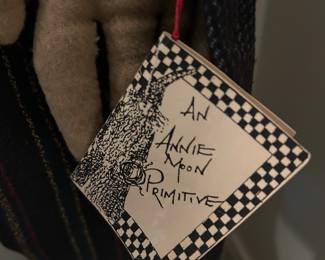 AN
ANNIE
MOON
PRIMITIVE